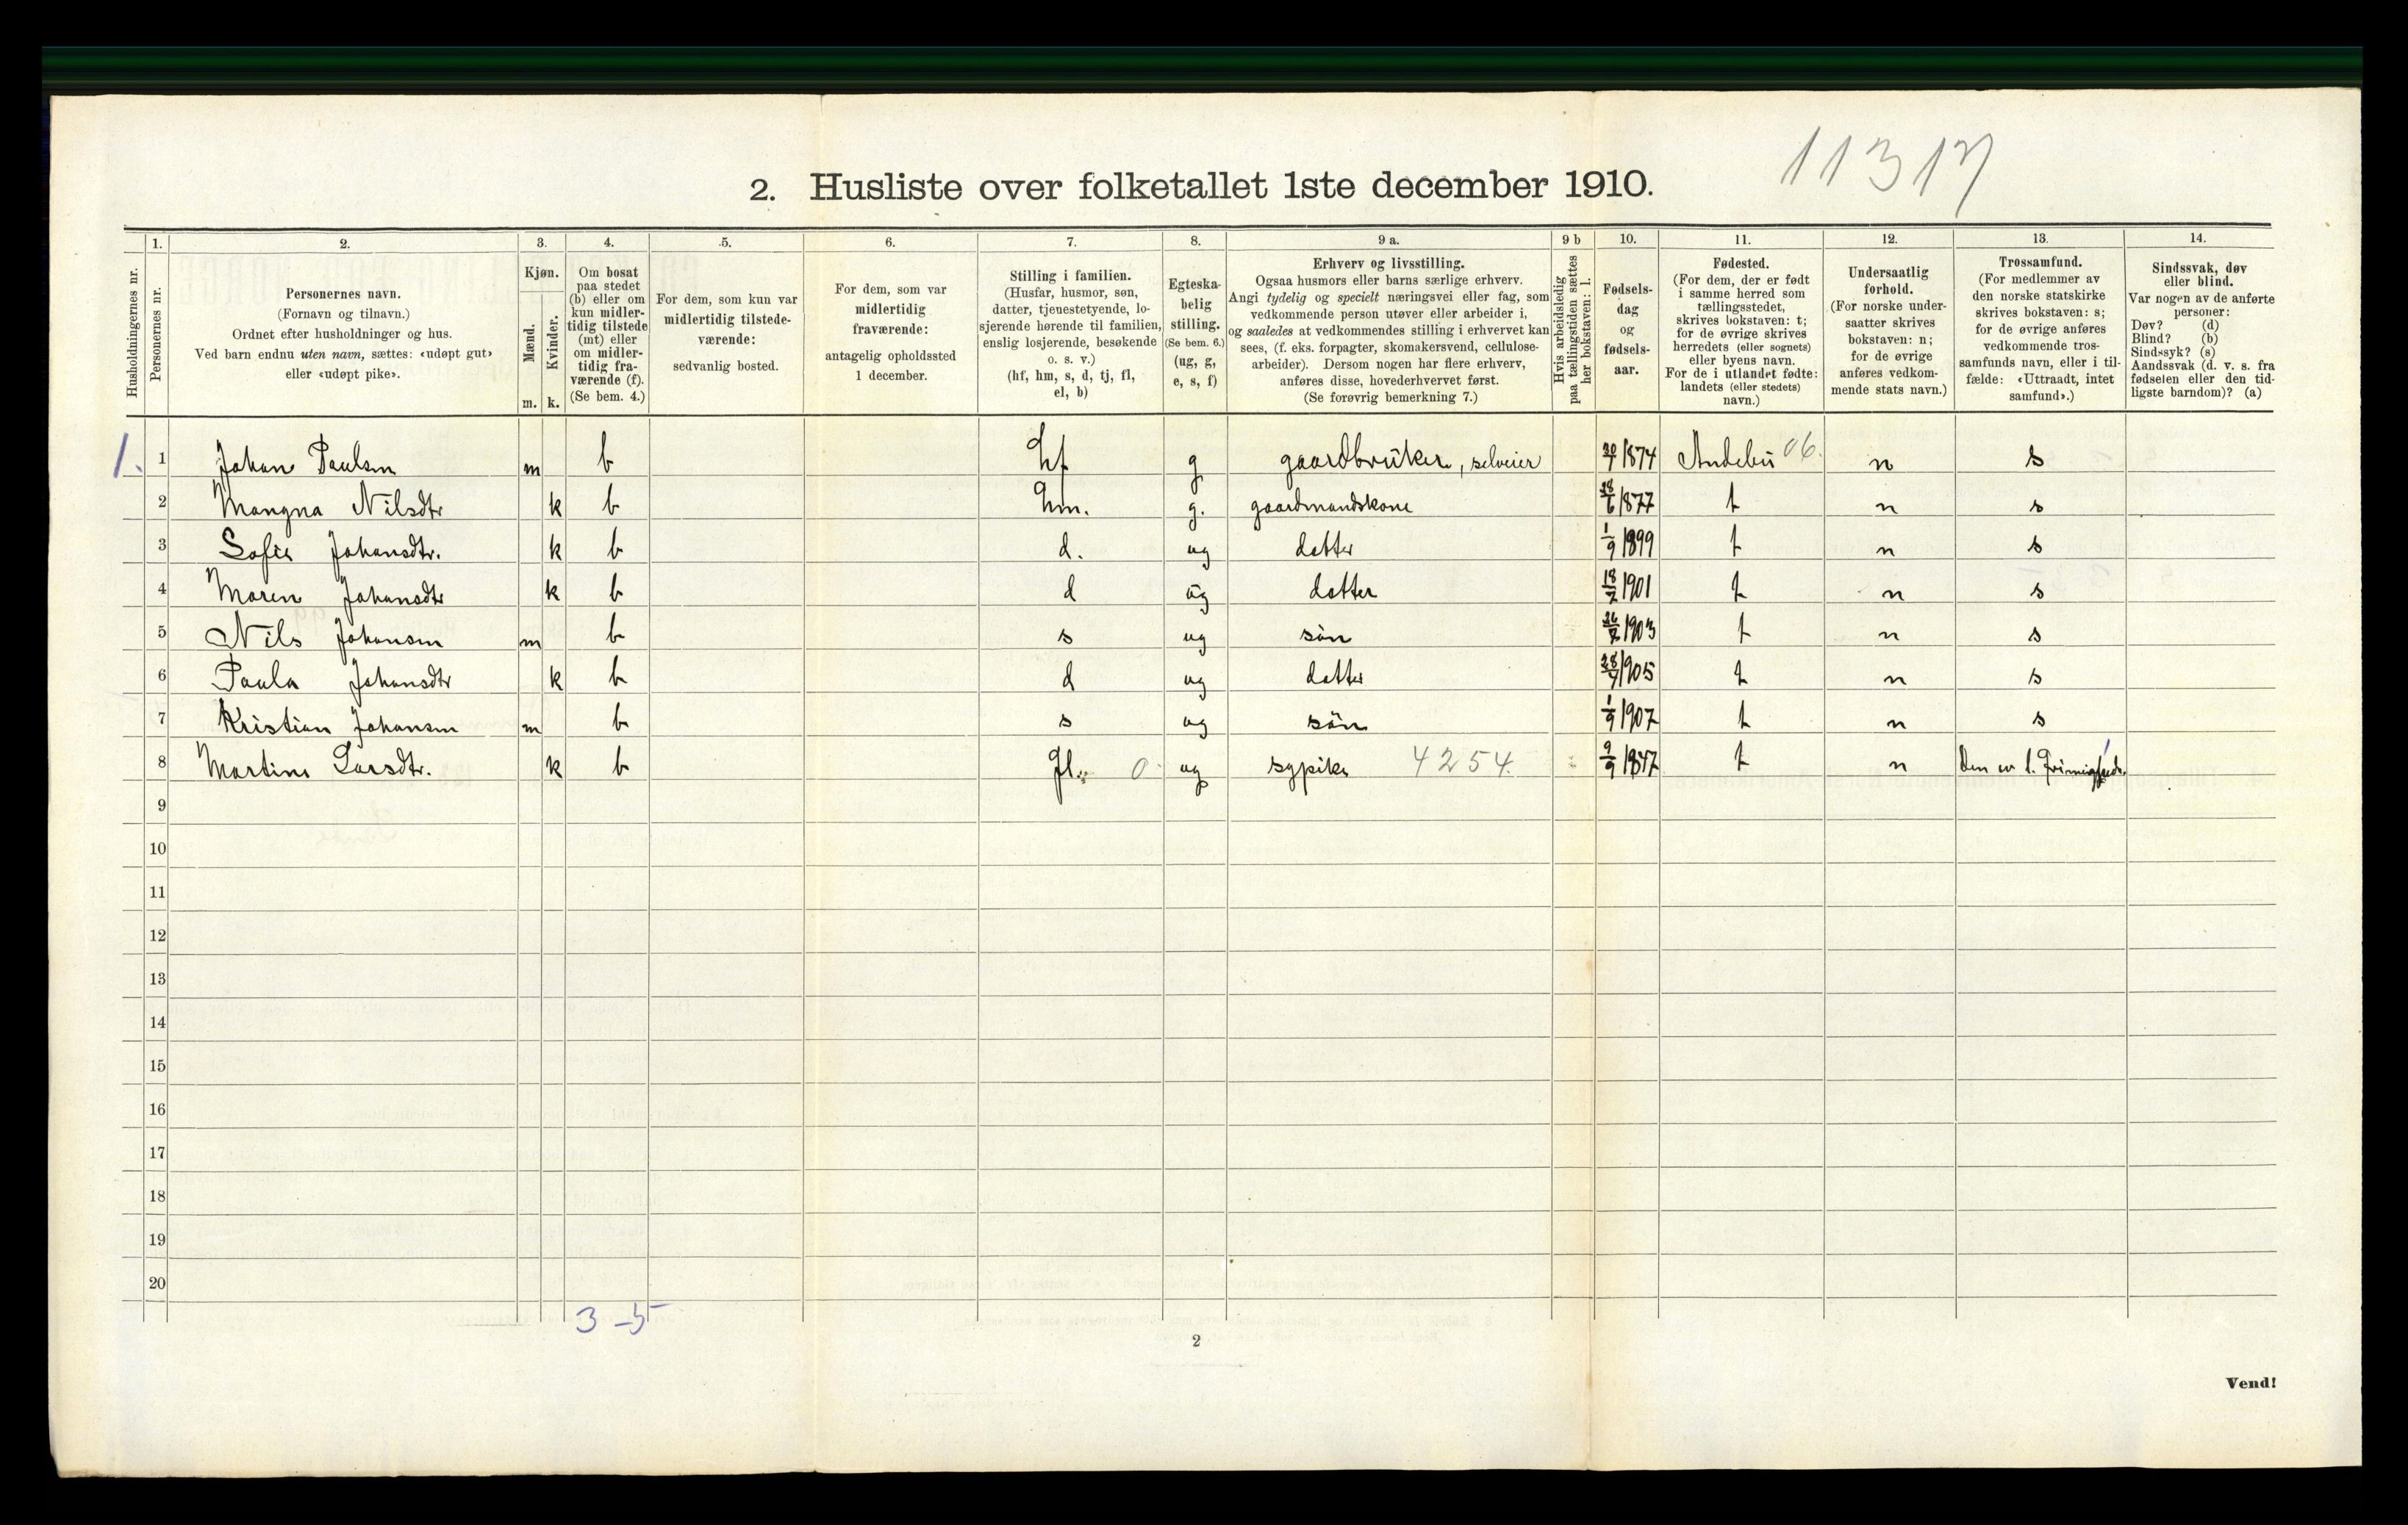 11317
2. Husliste over folketallet 1ste december 1910.
Husholdningernes nr.
1. Personernes nr.
2. Personernes navn.
(Fornavn og tilnavn.)
Ordnet efter husholdninger og hus.
Ved barn endnu uten navn, sættes: «udøpt gut»
eller «udøpt pike».
3. Kjøn.
Mænd. m.
Kvinder. k.
4. Om bosat
paa stedet
(b) eller om
kun midler-
tidig tilstede
(mt) eller
om midler-
tidig fra-
værende (f).
(Se bem. 4.)
5. For dem, som kun var
midlertidig tilstede-
værende:
sedvanlig bosted.
6. For dem, som var
midlertidig
fraværende:
antagelig opholdssted
1 december.
7. Stilling i familien.
(Husfar, husmor, søn,
datter, tjenestetyende, lo-
sjerende hørende til familien,
enslig losjerende, besøkende
o. s. v.)
(hf, hm, s, d, tj, fl,
el, b)
8. Egteska-
belig
stilling.
(Se bem. 6.)
(ug, g,
e, s, f)
9 a. Erhverv og livsstilling.
Ogsaa husmors eller barns særlige erhverv.
Angi tydelig og specielt næringsvei eller fag, som
vedkommende person utøver eller arbeider i,
og saaledes at vedkommendes stilling i erhvervet kan
sees, (f. eks. forpagter, skomakersvend, cellulose-
arbeider). Dersom nogen har flere erhverv,
anføres disse, hovederhvervet først.
(Se forøvrig bemerkning 7.)
9 b Hvis arbeidsledig
paa tællingstiden sættes
her bokstaven: l.
10. Fødsels-
dag
og
fødsels-
aar.
11. Fødested.
(For dem, der er født
i samme herred som
tællingsstedet,
skrives bokstaven: t;
for de øvrige skrives
herredets (eller sognets)
eller byens navn.
For de i utlandet fødte:
landets (eller stedets)
navn.)
12. Undersaatlig
forhold.
(For norske under-
saatter skrives
bokstaven: n;
for de øvrige
anføres vedkom-
mende stats navn.)
13. Trossamfund.
(For medlemmer av
den norske statskirke
skrives bokstaven: s;
for de øvrige anføres
vedkommende tros-
samfunds navn, eller i til-
fælde: «Uttraadt, intet
samfund».)
14. Sindssvak, døv
eller blind.
Var nogen av de anførte
personer:
Døv? (d)
Blind? (b)
Sindssyk? (s)
Aandssvak (d. v. s. fra
fødselen eller den tid-
ligste barndom)? (a)
1. 1 Johan Paulsen m b hf g gaardbruker, selveier 1874 Andebu 06. n s
2 Mangna Nilsdtr k b hm. g. gaardmandskone 28/6 1877 t n s
3 Sofie Johansdtr. k b d. ug datter 1/9 1899 t n s
4 Maren Johansdtr k b d ug datter 18/7 1901 t n s
5 Nils Johansen m b s ug søn 1903 t n s
6 Paula Johansdtr k b d ug datter 1905 t n s
7 Kristian Johansen m b s ug søn 1/9 1907 t n s
8 Martine Larsdtr. k b fl. 0 ug sypike 4254. 9/9 1847 t n Den ev. l.
9
10
11
12
13
14
15
16
17
18
19
20
3-5
2
Vend!